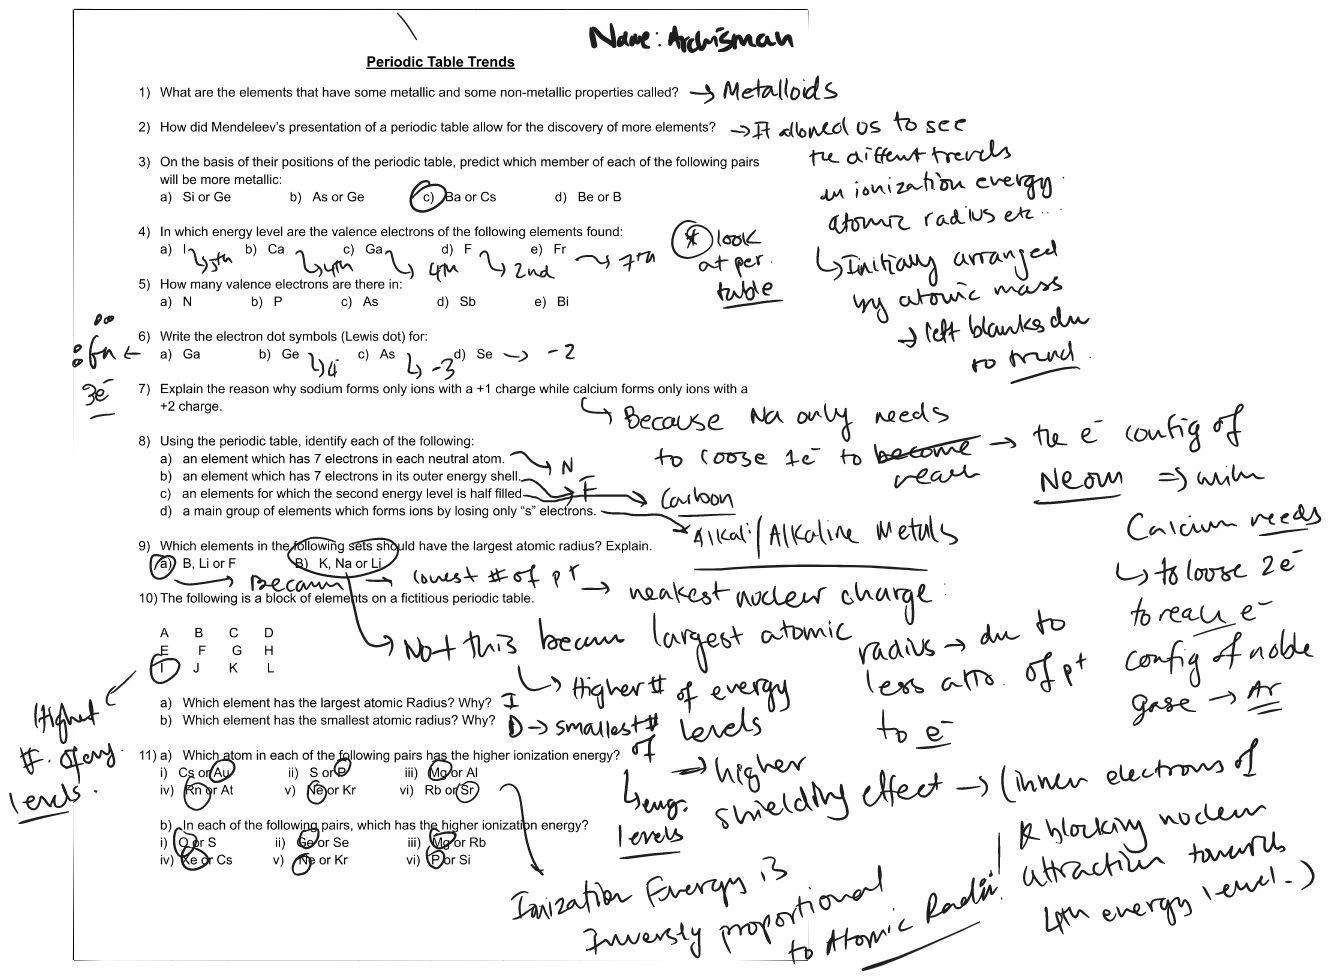 Name: Archisman
Periodic Table Trends
1) What are the elements that have some metallic and some non-metallic properties called? → Metalloids
2) How did Mendeleev's presentation of a periodic table allow for the discovery of more elements? → It allowed us to see
the diffent trends
in ionization energy
atomic radius etc...
↳ Initially arranged
by atomic mass
→ left blanks du
to trend
3) On the basis of their positions of the periodic table, predict which member of each of the following pairs
will be more metallic:
a) Si or Ge b) As or Ge c) Ba or Cs d) Be or B
4) In which energy level are the valence electrons of the following elements found:
a) I b) Ca c) Ga d) F e) Fr
↳ 5th ↳ 4th ↳ 4th ↳ 2nd → 7th
* look
at per.
table
5) How many valence electrons are there in:
a) N b) P c) As d) Sb e) Bi
6) Write the electron dot symbols (Lewis dot) for:
a) Ga b) Ge c) As d) Se → -2
↳ 4 ↳ -3
Ga ←
3e⁻
7) Explain the reason why sodium forms only ions with a +1 charge while calcium forms only ions with a
+2 charge.
↳ Because Na only needs
to loose 1e⁻ to become reach → the e⁻ config of
Neon ⇒
Calcium needs
↳ to loose 2e⁻
to reach e⁻
config of noble
gase → Ar
8) Using the periodic table, identify each of the following:
a) an element which has 7 electrons in each neutral atom. → N
b) an element which has 7 electrons in its outer energy shell. → F
c) an elements for which the second energy level is half filled → Carbon
d) a main group of elements which forms ions by losing only "s" electrons. → Alkali/Alkaline Metals
9) Which elements in the following sets should have the largest atomic radius? Explain.
a) B, Li or F B) K, Na or Li
→ Becaus → lowest # of p⁺ → weakest nuclear charge :
→ Not this becaus largest atomic
radius → du to
less attr. of p⁺
to e⁻
↳ Higher # of energy
levels
→ higher
shielding effect → (inner electrons of
K blocking nuclear
attraction towards
4th energy level.)
10) The following is a block of elements on a fictitious periodic table.
A B C D
E F G H
I J K L
Highest
#. of eng.
levels.
a) Which element has the largest atomic Radius? Why? I
b) Which element has the smallest atomic radius? Why? D → smallest #
of
eng.
levels
11) a) Which atom in each of the following pairs has the higher ionization energy?
i) Cs or Au ii) S or P iii) Mg or Al
iv) Rn or At v) Ne or Kr vi) Rb or Sr
b) In each of the following pairs, which has the higher ionization energy?
i) O or S ii) Ge or Se iii) Mg or Rb
iv) Xe or Cs v) Ne or Kr vi) P or Si
Ionization Energy is
Inversly proportional
to Atomic Radii.